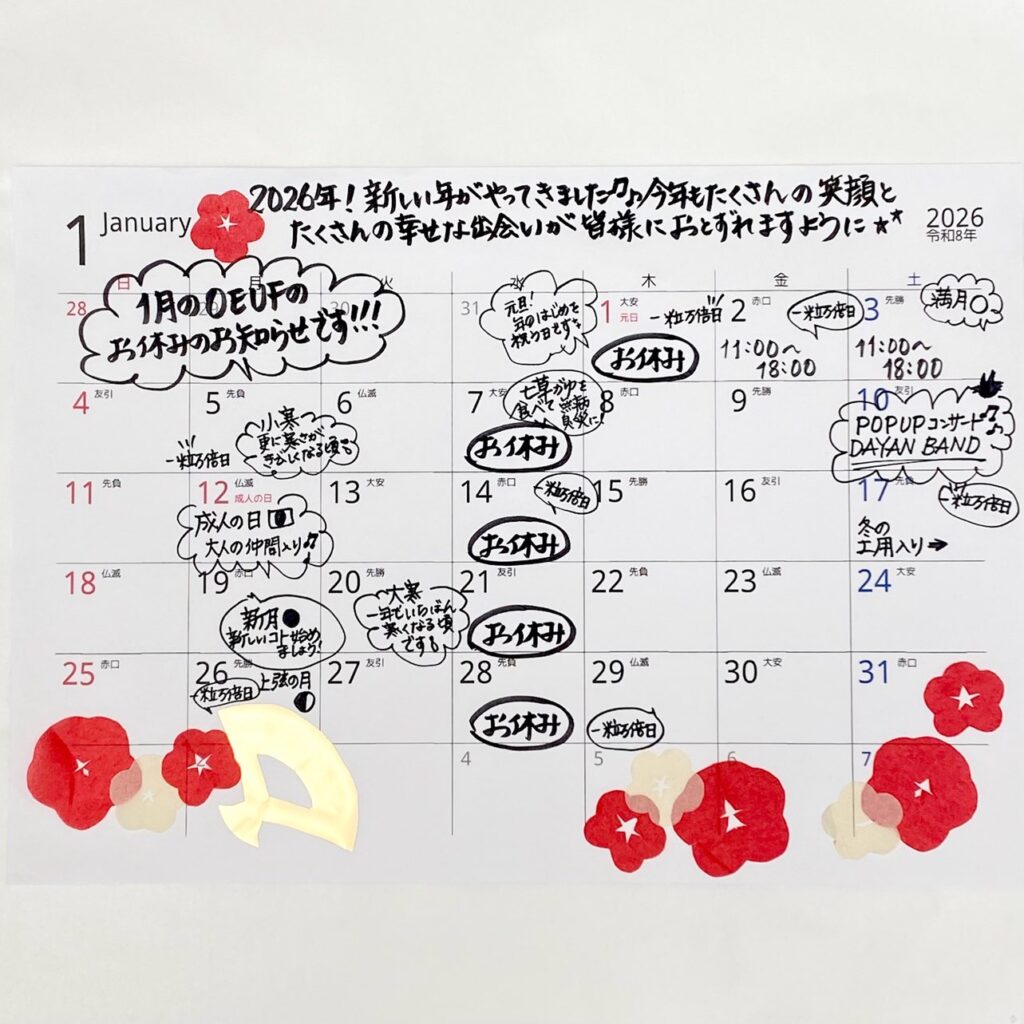 1 January
2026年！新しい年がやってきました♫♪今年もたくさんの笑顔と
たくさんの幸せな出会いが皆様におとずれますように★★
2026
令和8年
日 月 火 水 木 金 土
28 29 30 31
1月のOEUFの
お休みのお知らせです!!!
元旦！
年のはじめを
祝う日です
1 大安
元日
一粒万倍日
お休み
2 赤口
一粒万倍日
11:00〜
18:00
3 先勝
満月
11:00〜
18:00
4 友引
5 先負
一粒万倍日
小寒
更に寒さが
きびしくなる頃
6 仏滅
7 大安
七草がゆを
食べて 無病
息災に！
お休み
8 赤口
9 先勝
10 友引
POPUPコンサート♪♪
DAYAN BAND
11 先負
12 仏滅
成人の日
成人の日
大人の仲間入り♫
13 大安
14 赤口
一粒万倍日
お休み
15 先勝
16 友引
17 先負
一粒万倍日
冬の
土用入り→
18 仏滅
19 赤口
新月
新しいコト始め
ましょう！
20 先勝
大寒
一年でいちばん
寒くなる頃
です
21 友引
お休み
22 先負
23 仏滅
24 大安
25 赤口
26 先勝
一粒万倍日
上弦の月
27 友引
28 先負
お休み
29 仏滅
一粒万倍日
30 大安
31 赤口
4 5 6 7